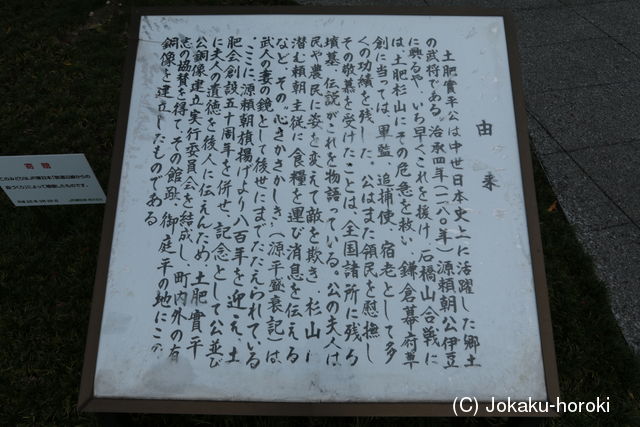 由来
土肥實平公は中世日本史上に活躍した郷土
の武将である。治承四年(一一八〇年)源頼朝公伊豆
に興るや、いち早くこれを援け、石橋山合戦に
は、土肥杉山にその危急を救い、鎌倉幕府草
創に当っては、軍監、追捕使、宿老として多
くの功績を残した。公はまた領民を慰撫し
その敬慕を受けたことは、全国諸所に残る
墳墓、伝説がこれを物語っている。公の夫人は
民や農民に姿を変えて敵を欺き、杉山に
潜む頼朝主従に食糧を運び消息を伝える
など、その、心さかさかしき、(源平盛衰記)は、
武人の妻の鏡として後世にまでたたえられている
ここに源頼朝旗揚げより八百年を迎え、土
肥会創設五十周年を併せ、記念として公並び
に夫人の遺徳を後人に伝えんため、土肥實平
公銅像建立実行委員会を結成し、町内外の有
志の協賛を得て、その館趾、御庭平の地にこの
銅像を建立したものである
寄贈
(C) Jokaku-horoki